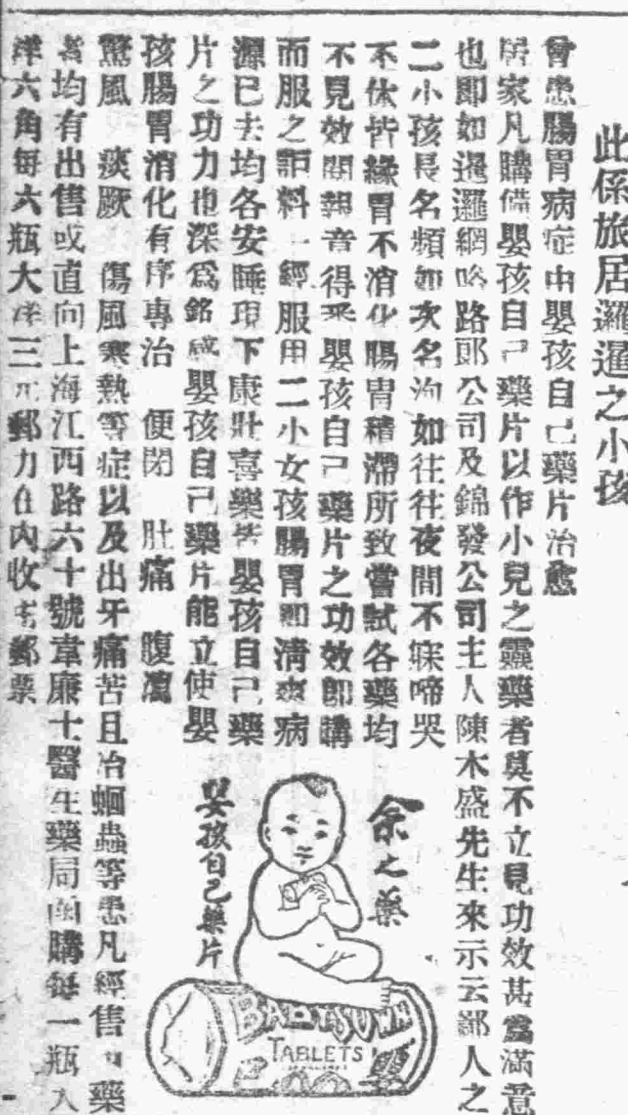 此係旅居暹邏之小孩
曾患腸胃病症由嬰孩自己藥片治愈
居家凡購備嬰孩自己藥片以作小兒之靈藥者莫不立見功效甚為滿意
也即如暹邏網咯路郎公司及錦發公司主人陳木盛先生來示云鄙人之
二小孩長名頻如次名洵如往往夜間不寐啼哭
不休皆緣胃不消化腸胃積滯所致嘗試各藥均
不見效閱報章得悉嬰孩自己藥片之功效即購
而服之詎料一經服用二小女孩腸胃即清爽病
源已去均各安睡現下康壯喜樂皆嬰孩自己藥
片之功力也深為銘感嬰孩自己藥片能立使嬰
孩腸胃消化有序專治 便閉 肚痛 腹瀉
驚風 痰厥 傷風寒熱等症以及出牙痛苦且治蛔蟲等患凡經售 藥
者均有出售或直向上海江西路六十號韋廉士醫生藥局函購每一瓶大
洋六角每六瓶大洋三元郵力在內收 郵票
余之藥
嬰孩自己藥片
BABY'S OWN
TABLETS